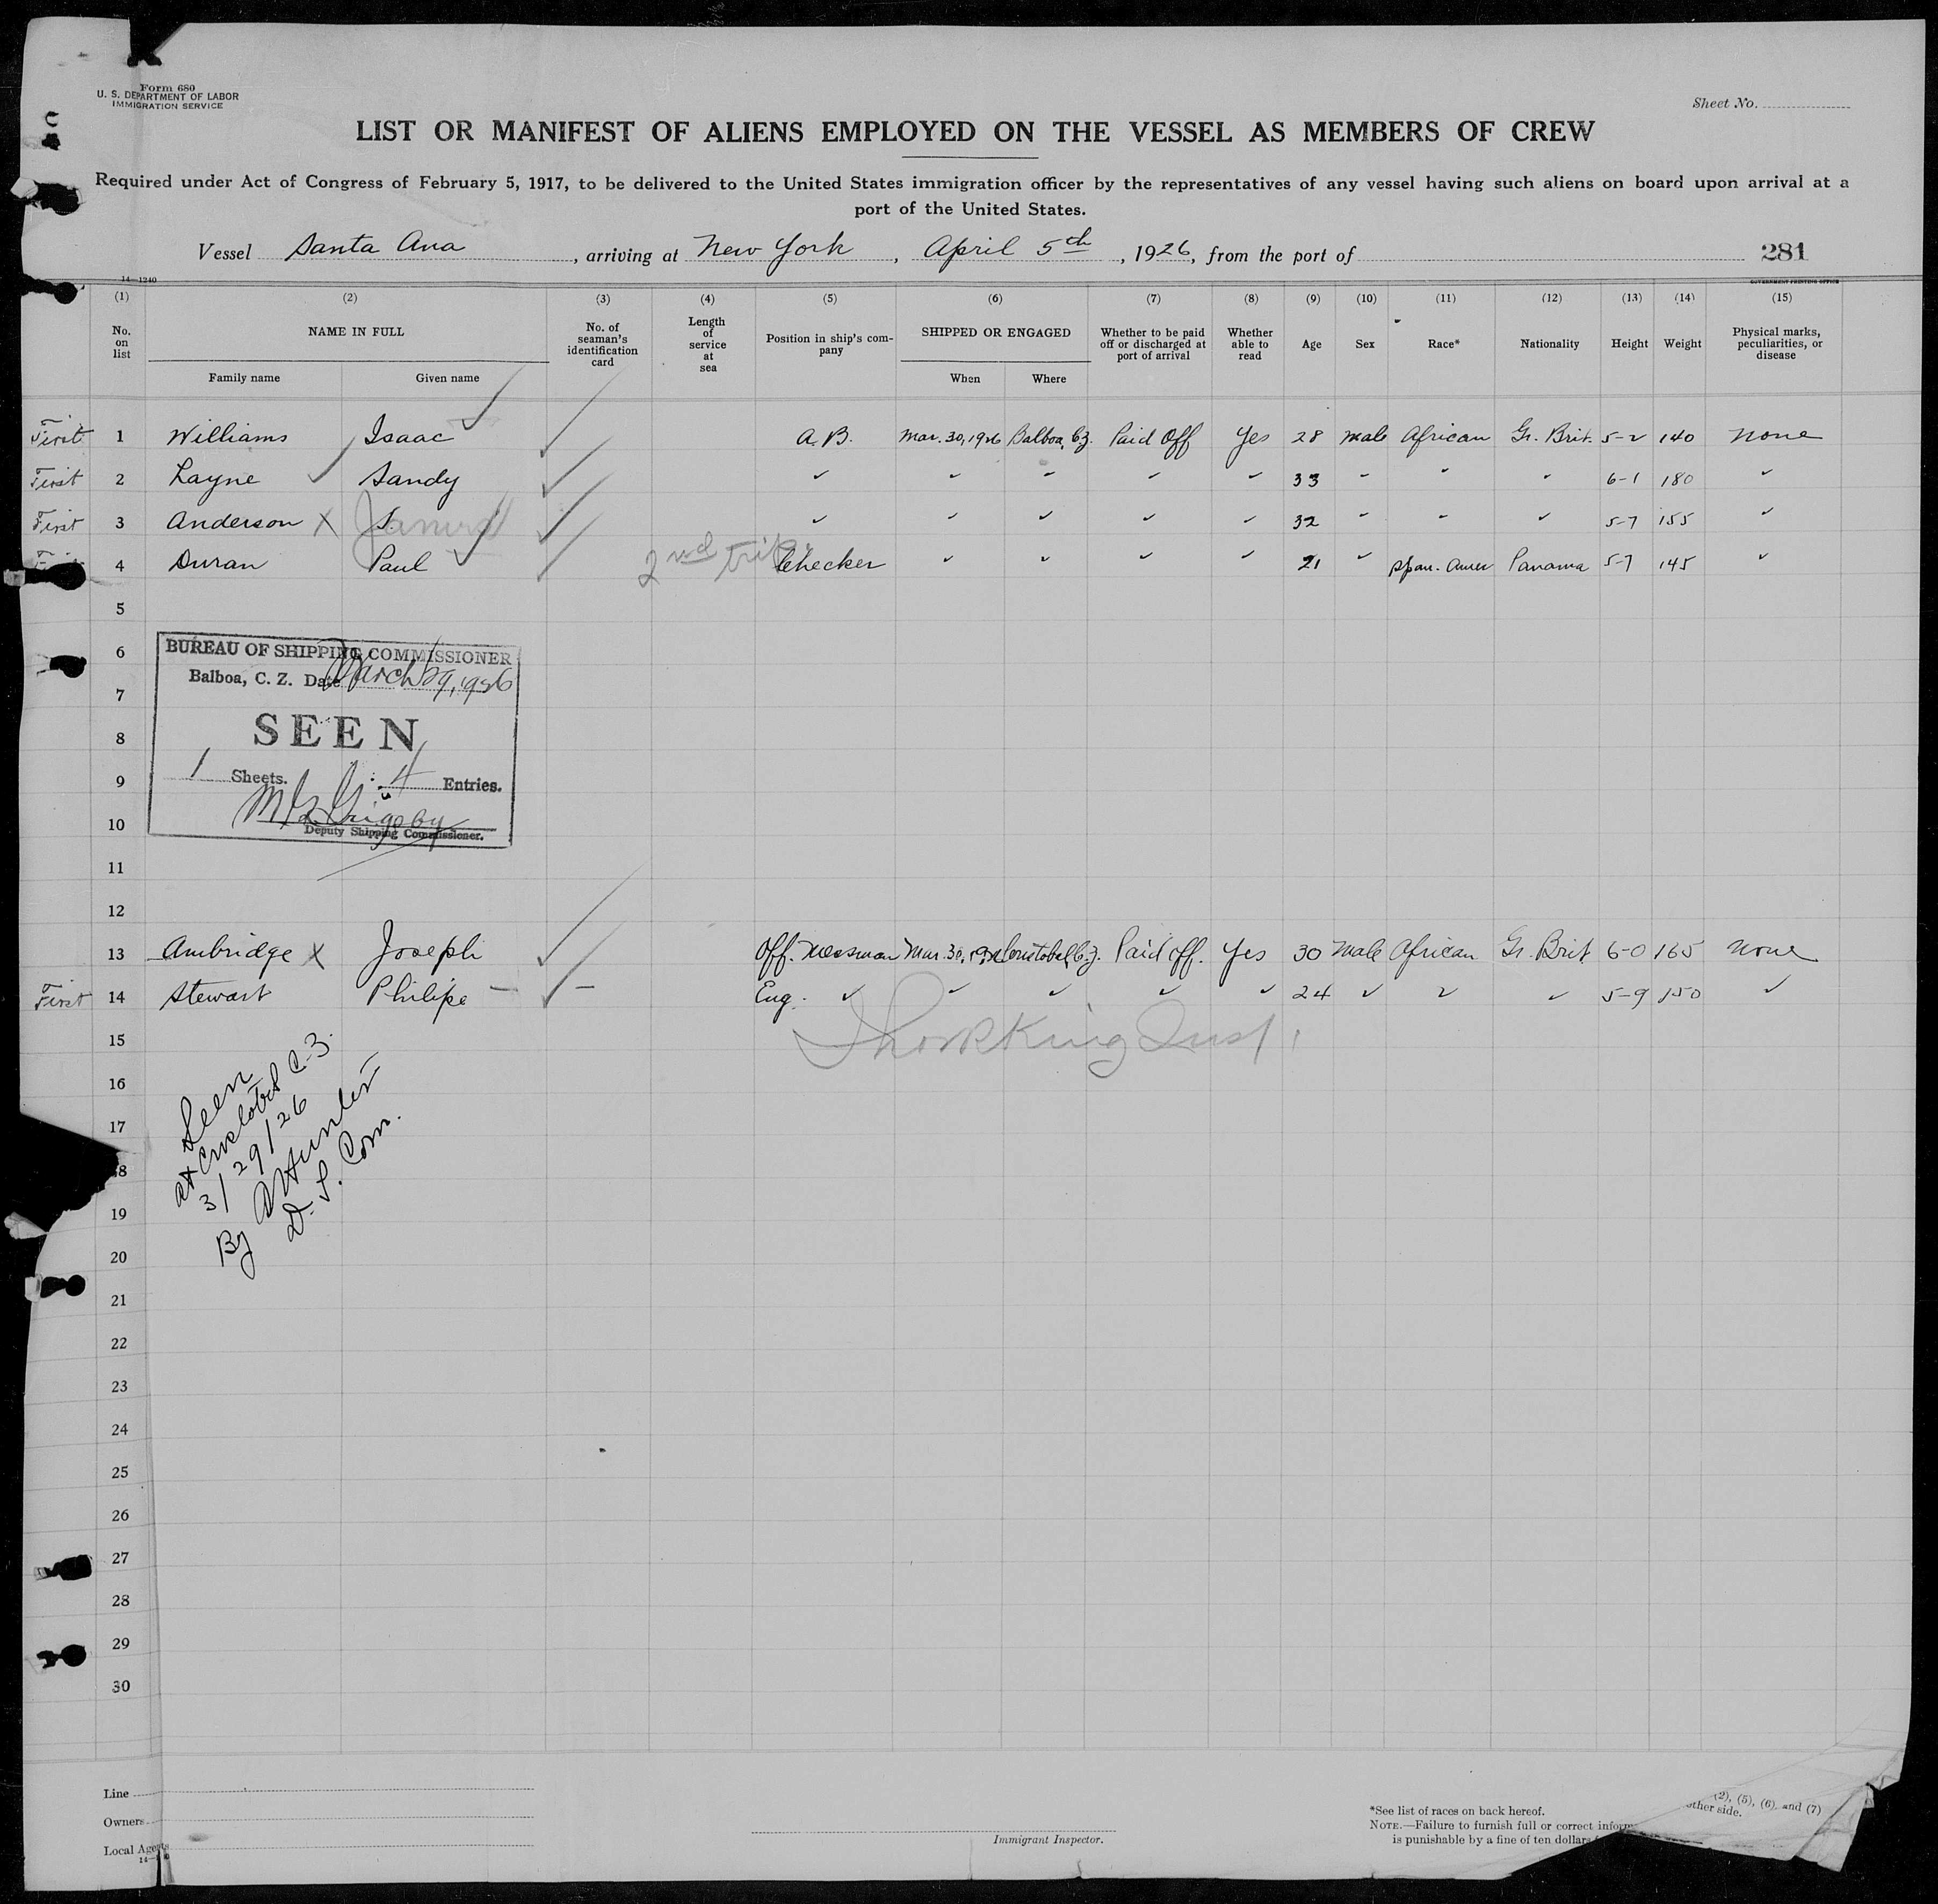 Form 680
U. S. DEPARTMENT OF LABOR
IMMIGRATION SERVICE
Sheet No.
LIST OR MANIFEST OF ALIENS EMPLOYED ON THE VESSEL AS MEMBERS OF CREW
Required under Act of Congress of February 5, 1917, to be delivered to the United States immigration officer by the representatives of any vessel having such aliens on board upon arrival at a
port of the United States.
Vessel Santa Ana, arriving at New York, April 5th, 1926, from the port of 281
14—1240
GOVERNMENT PRINTING OFFICE
(1) (2) (3) (4) (5) (6) (7) (8) (9) (10) (11) (12) (13) (14) (15)
No. on list NAME IN FULL Family name Given name No. of seaman's identification card Length of service at sea Position in ship's company SHIPPED OR ENGAGED When Where Whether to be paid off or discharged at port of arrival Whether able to read Age Sex Race* Nationality Height Weight Physical marks, peculiarities, or disease
First 1 Williams Isaac A.B. Mar. 30, 1926 Balboa, C.Z. Paid Off Yes 28 Male African Gr. Brit. 5-2 140 None
First 2 Layne Sandy ✓ ✓ ✓ ✓ ✓ 33 ✓ ✓ ✓ 6-1 180 ✓
First 3 Anderson X J. ✓ ✓ ✓ ✓ ✓ 32 ✓ ✓ ✓ 5-7 155 ✓
4 Duran Paul 2nd trip Checker ✓ ✓ ✓ ✓ 21 ✓ Span. Amer Panama 5-7 145 ✓
5
6
7
8
9
10
11
12
BUREAU OF SHIPPING COMMISSIONER
Balboa, C. Z. Date March 29, 1926
SEEN
1 Sheets. 4 Entries.
Grigsby
Deputy Shipping Commissioner.
13 Ambridge X Joseph Off. Messman Mar. 30, 1926 Cristobal, C.Z. Paid off. Yes 30 Male African Gr. Brit 6-0 165 None
First 14 Stewart Philipe Eng. ✓ ✓ ✓ ✓ ✓ 24 ✓ ✓ ✓ 5-9 150 ✓
15
16
17
18
19
20
21
22
23
24
25
26
27
28
29
30
Seen
at Cristobal C.Z.
3/29/26
By A Hunter
D. S. Com.
Line
Owners
Local Agents
Immigrant Inspector.
*See list of races on back hereof.
NOTE.—Failure to furnish full or correct
is punishable by a fine of ten dollars
(2), (5), (6), and (7)
other side.